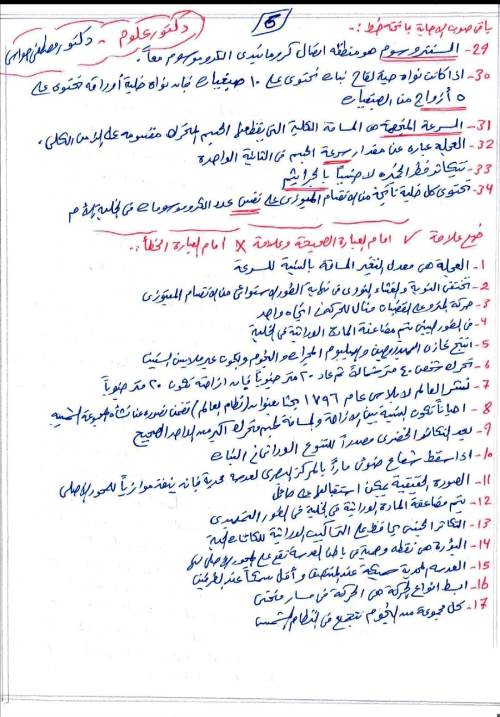 5
دكتور علوم - دكتور مصطفى
باقى صوب الاجابة ما تحته خط :-
29- السنترومير هو منطقة اتصال كروماتيدى الكروموسوم معاً.
30- اذا كانت نواة حبة لقاح نبات تحتوى على 10 صبغيات فإن نواة خلية أوراقه تحتوى على
5 أزواج من الصبغيات
31- السرعة المتجهة هى المسافة الكلية التى يقطعها الجسم المتحرك مقسومة على الزمن الكلى.
32- العجلة عبارة عن مقدار سرعة الجسم فى الثانية الواحدة
33- يتكاثر فطر الخميرة لا جنسياً بالجراثيم
34- تحتوى كل خلية ناتجة من الانقسام الميوزى على نفس عدد الكروموسومات فى الخلية الأم
ضع علامة √ امام العبارة الصحيحة وعلامة × أمام العبارة الخطأ :-
1- العجلة هى معدل التغير المسافة بالنسبة للسرعة
2- تختفى النوية والغشاء النووى فى نهاية الطور الاستوائى من الانقسام الميتوزى
3- حركة المترو على القضبان مثال للحركة فى اتجاه واحد
4- فى الطور البينى يتم مضاعفة المادة الوراثية فى الخلية
5- انتج غازى الهيدروجين والهيليوم المجرات والنجوم والكون عبر ملايين السنين
6- تحرك شخص 40 متر شمالاً ثم عاد 20 متر جنوباً فإن ازاحته تكون 20 متر جنوباً
7- نشر العالم لابلاس عام 1796 بحثا بعنوان (نظام العالم) تضمن تصوره عن نشأة المجموعة الشمسية
8- احياناً تكون النسبة بين الازاحة والمسافة لجسم متحرك اكبر من الواحد الصحيح
9- يعد التكاثر الخضرى مصدراً للتنوع الوراثى فى النبات
10- اذا سقط شعاع ضوئى ماراً بالمركز البصرى لعدسة محدبة فإنه ينفذ موازياً للمحور الاصلى
11- الصورة الحقيقية يمكن استقبالها على حائل
12- يتم مضاعفة المادة الوراثية فى الخلية فى الطور التمهيدى
13- التكاثر الجنسى يحافظ على التراكيب الوراثية للكائنات الحية
14- البؤرة هى نقطة وهمية فى باطن العدسة تقع على المحور الاصلى لها
15- العدسة المحدبة سميكة عند المنتصف وأقل سمكاً عند الطرفين
16- ابسط انواع الحركة هى الحركة فى مسار منحنى
17- كل مجموعة من النجوم تتجمع فى النظام الشمسى